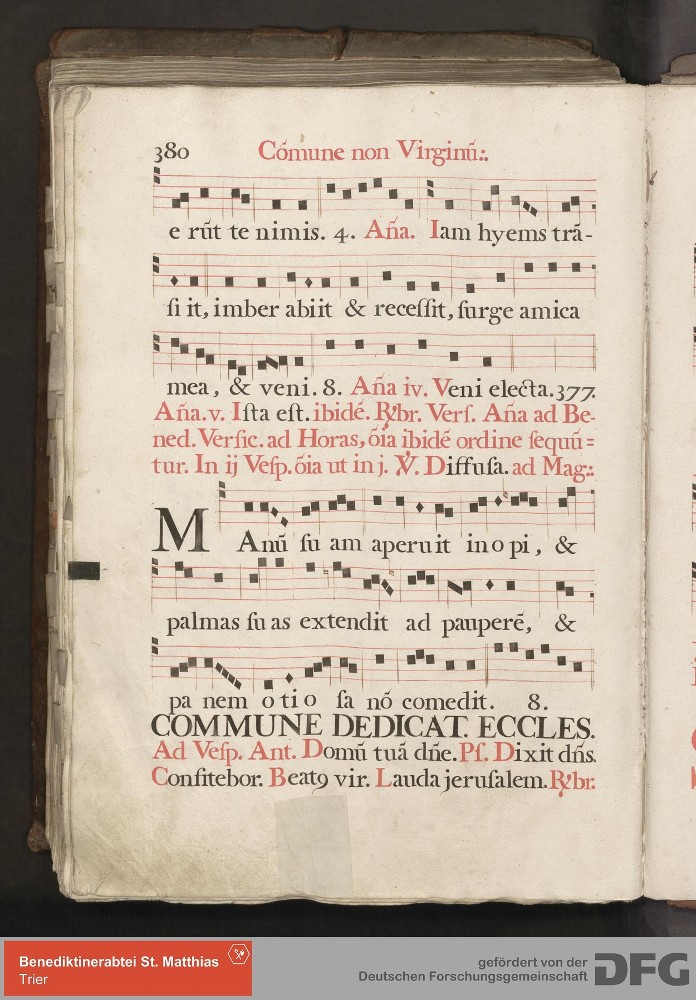 380 Cõmune non Virginũ:.
e rũt te nimis. 4. Añа. Iam hyems trã-
ſi it, imber abiit & receſſit, ſurge amica
mea, & veni. 8. Aña iv. Veni electa. 377.
Aña. v. Iſta eſt. ibidé. R̷br. Verſ. Aña ad Be-
ned. Verſic. ad Horas, õia ibidé ordine ſequũ=
tur. In ij Veſp. õia ut in j. V̷. Diffuſa. ad Mag:.
MAnũ ſu am aperuit inopi, &
palmas ſu as extendit ad pauperẽ, &
pa nem o ti o ſa nõ comedit. 8.
COMMUNE DEDICAT. ECCLES.
Ad Veſp. Ant. Domũ tuã dñe. Pſ. Dixit dñs.
Confitebor. Beat9 vir. Lauda jeruſalem. R̷br.
Benediktinerabtei St. Matthias
Trier
gefördert von der
Deutschen Forschungsgemeinschaft
DFG